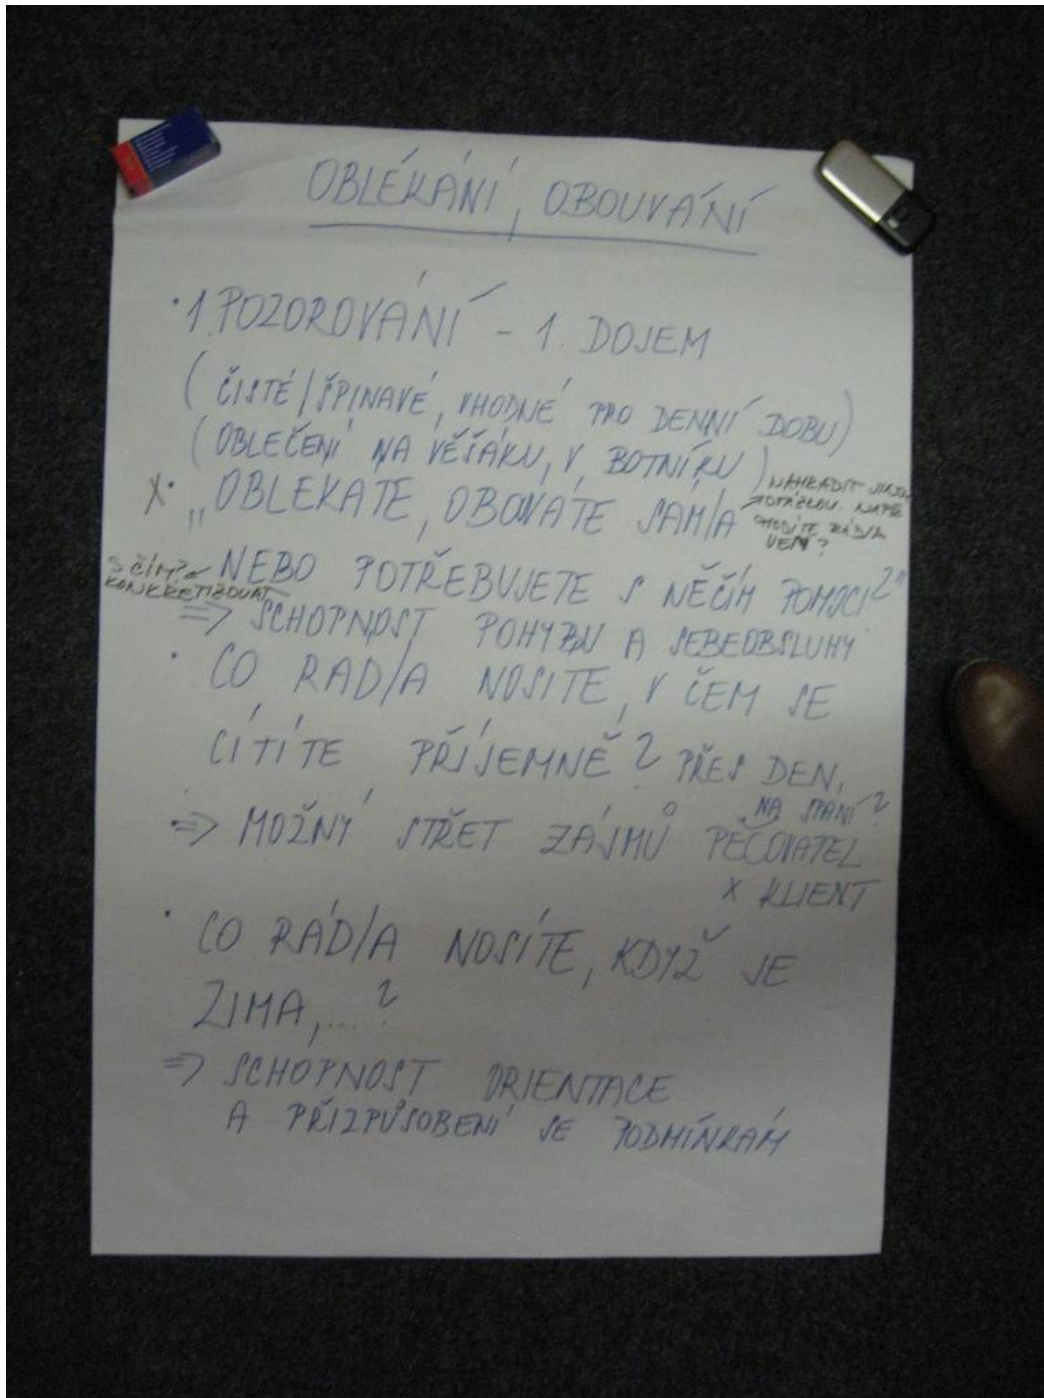 OBLÉKÁNÍ, OBOUVÁNÍ
• 1. POZOROVÁNÍ - 1. DOJEM
( ČISTÉ / ŠPINAVÉ, VHODNÉ PRO DENNÍ DOBU )
( OBLEČENÍ NA VĚŠÁKU, V BOTNÍKU )
X • „OBLÉKÁTE, OBOUVÁTE SÁM/A
NAHRADIT JINOU
OTÁZKOU. NAPŘ.
CHODÍTE RÁD/A
VEN?
S ČÍM?
KONKRETIZOVAT
NEBO POTŘEBUJETE S NĚČÍM POMOCI?"
=> SCHOPNOST POHYBU A SEBEOBSLUHY
• CO RÁD/A NOSÍTE, V ČEM SE
CÍTÍTE PŘÍJEMNĚ? PŘES DEN,
NA SPANÍ?
• => MOŽNÝ STŘET ZÁJMŮ PEČOVATEL
X KLIENT
• CO RÁD/A NOSÍTE, KDYŽ JE
ZIMA,...?
=> SCHOPNOST ORIENTACE
A PŘIZPŮSOBENÍ SE PODMÍNKÁM